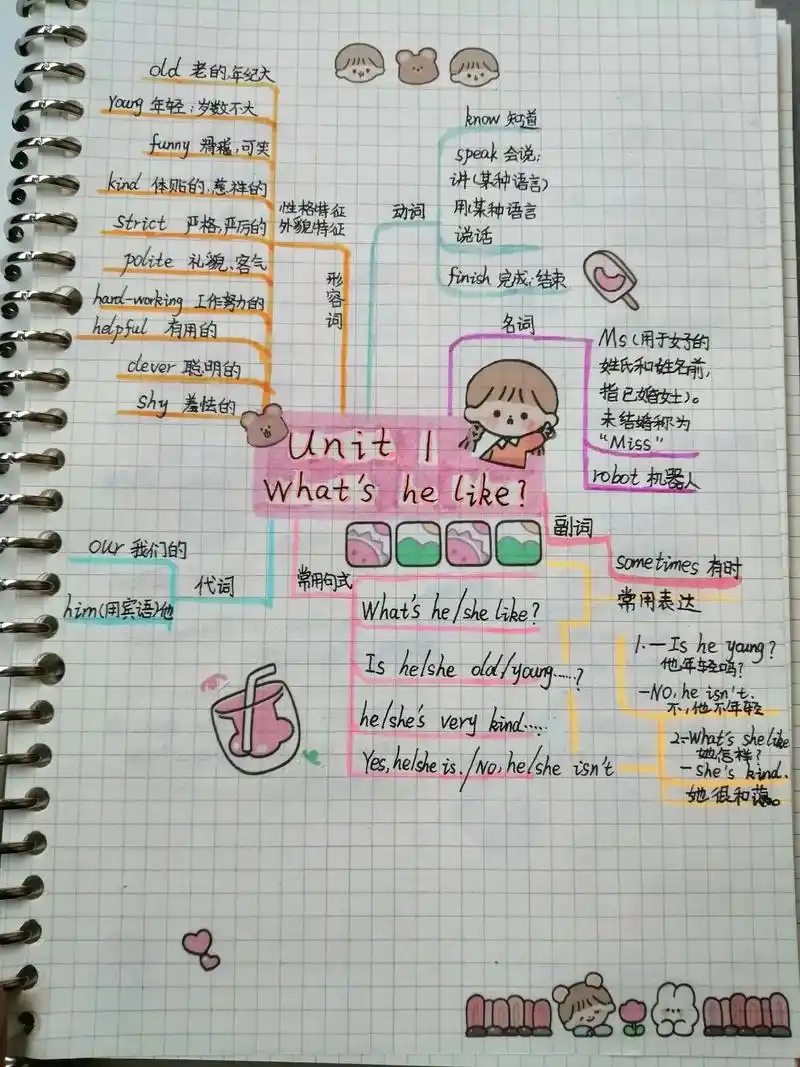 Unit 1
What's he like?
形容词
性格特征
外貌特征
old 老的,年纪大
young 年轻;岁数不大
funny 滑稽,可笑
kind 体贴的,慈祥的
strict 严格,严厉的
polite 礼貌、客气
hard-working 工作努力的
helpful 有用的
clever 聪明的
shy 羞怯的
动词
know 知道
speak 会说;
讲(某种语言)
用(某种语言
说话
finish 完成;结束
名词
Ms(用于女子的
姓氏和姓名前,
指已婚女士)。
未结婚称为
"Miss"
robot 机器人
副词
sometimes 有时
代词
our 我们的
him(用宾语)他
常用句式
What's he/she like?
Is he/she old/young......?
he/she's very kind.....
Yes, he/she is./No, he/she isn't
常用表达
1.—Is he young?
他年轻吗?
—NO, he isn't.
不,他不年轻
2.—What's she like
她怎样?
—she's kind.
她很和蔼。